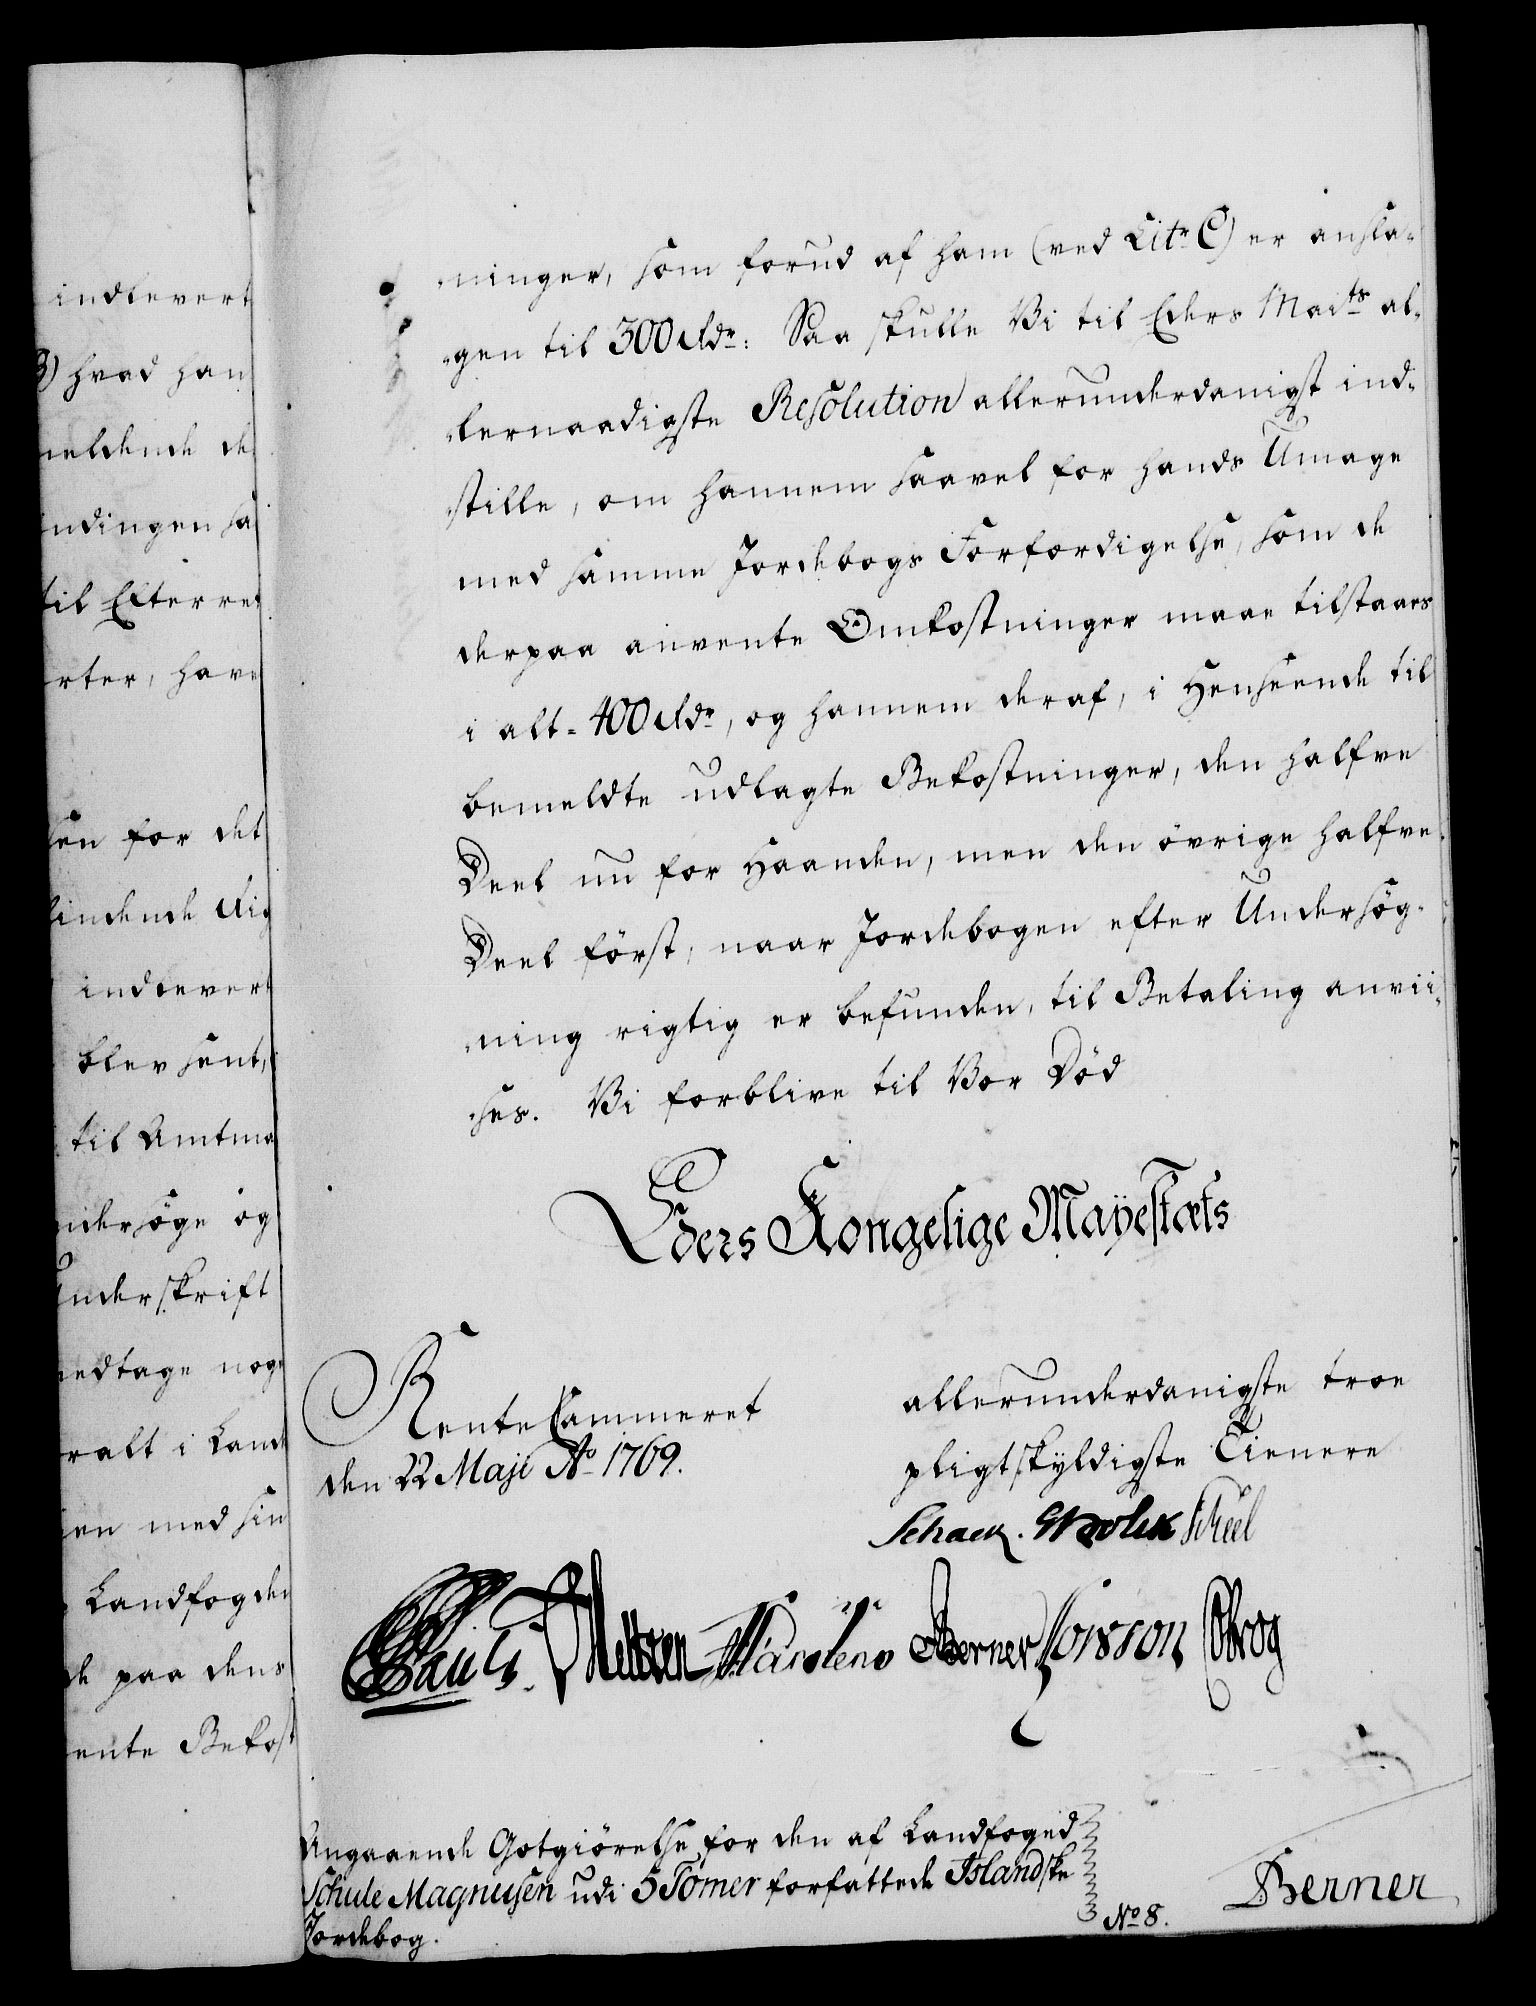 indlevert
B) hvad han
meldende de
ndingen sa
til Efterret
rter, have
sen for det
bindende Rig
indlevert
blev sent,
til Amtma
undersøge og
Underskrift
medtage nog
ralt i Land
en med sin
Landfogden
de paa dens
ente Bekost
ninger, som forud af ham (ved Litr C) er ansla-
gen til 300 Rdr: Saa skulle Vi til Eders Maits al-
lernaadigste Resolution allerunderdanigst ind-
stille, om hannem saavel for hands Umage
med samme Jordebogs Forfærdigelse, som de
derpaa anvente Omkostninger maae tilstaaes
i alt - 400 Rdr, og hannem deraf, i Henseende til
bemeldte udlagte Bekostninger, den halfve
Deel nu for Haanden, men den övrige halfve
Deel först, naar Jordebogen efter Undersøg-
ning rigtig er befunden, til Betaling anvii-
ses. Vi forblive til Vor Död
Eders Kongelige Mayestæts
RenteCammeret
den 22 Maji Ao 1769.
allerunderdanigste troe
pligtskyldigste Tienere
Schack. Scheel
Pauli. Berner
Angaaende Gotgiörelse for den af Landfoged
Schule Magnusen udi 5 Tomer forfattede Islandske
Jordebog.
No 8.
Berner